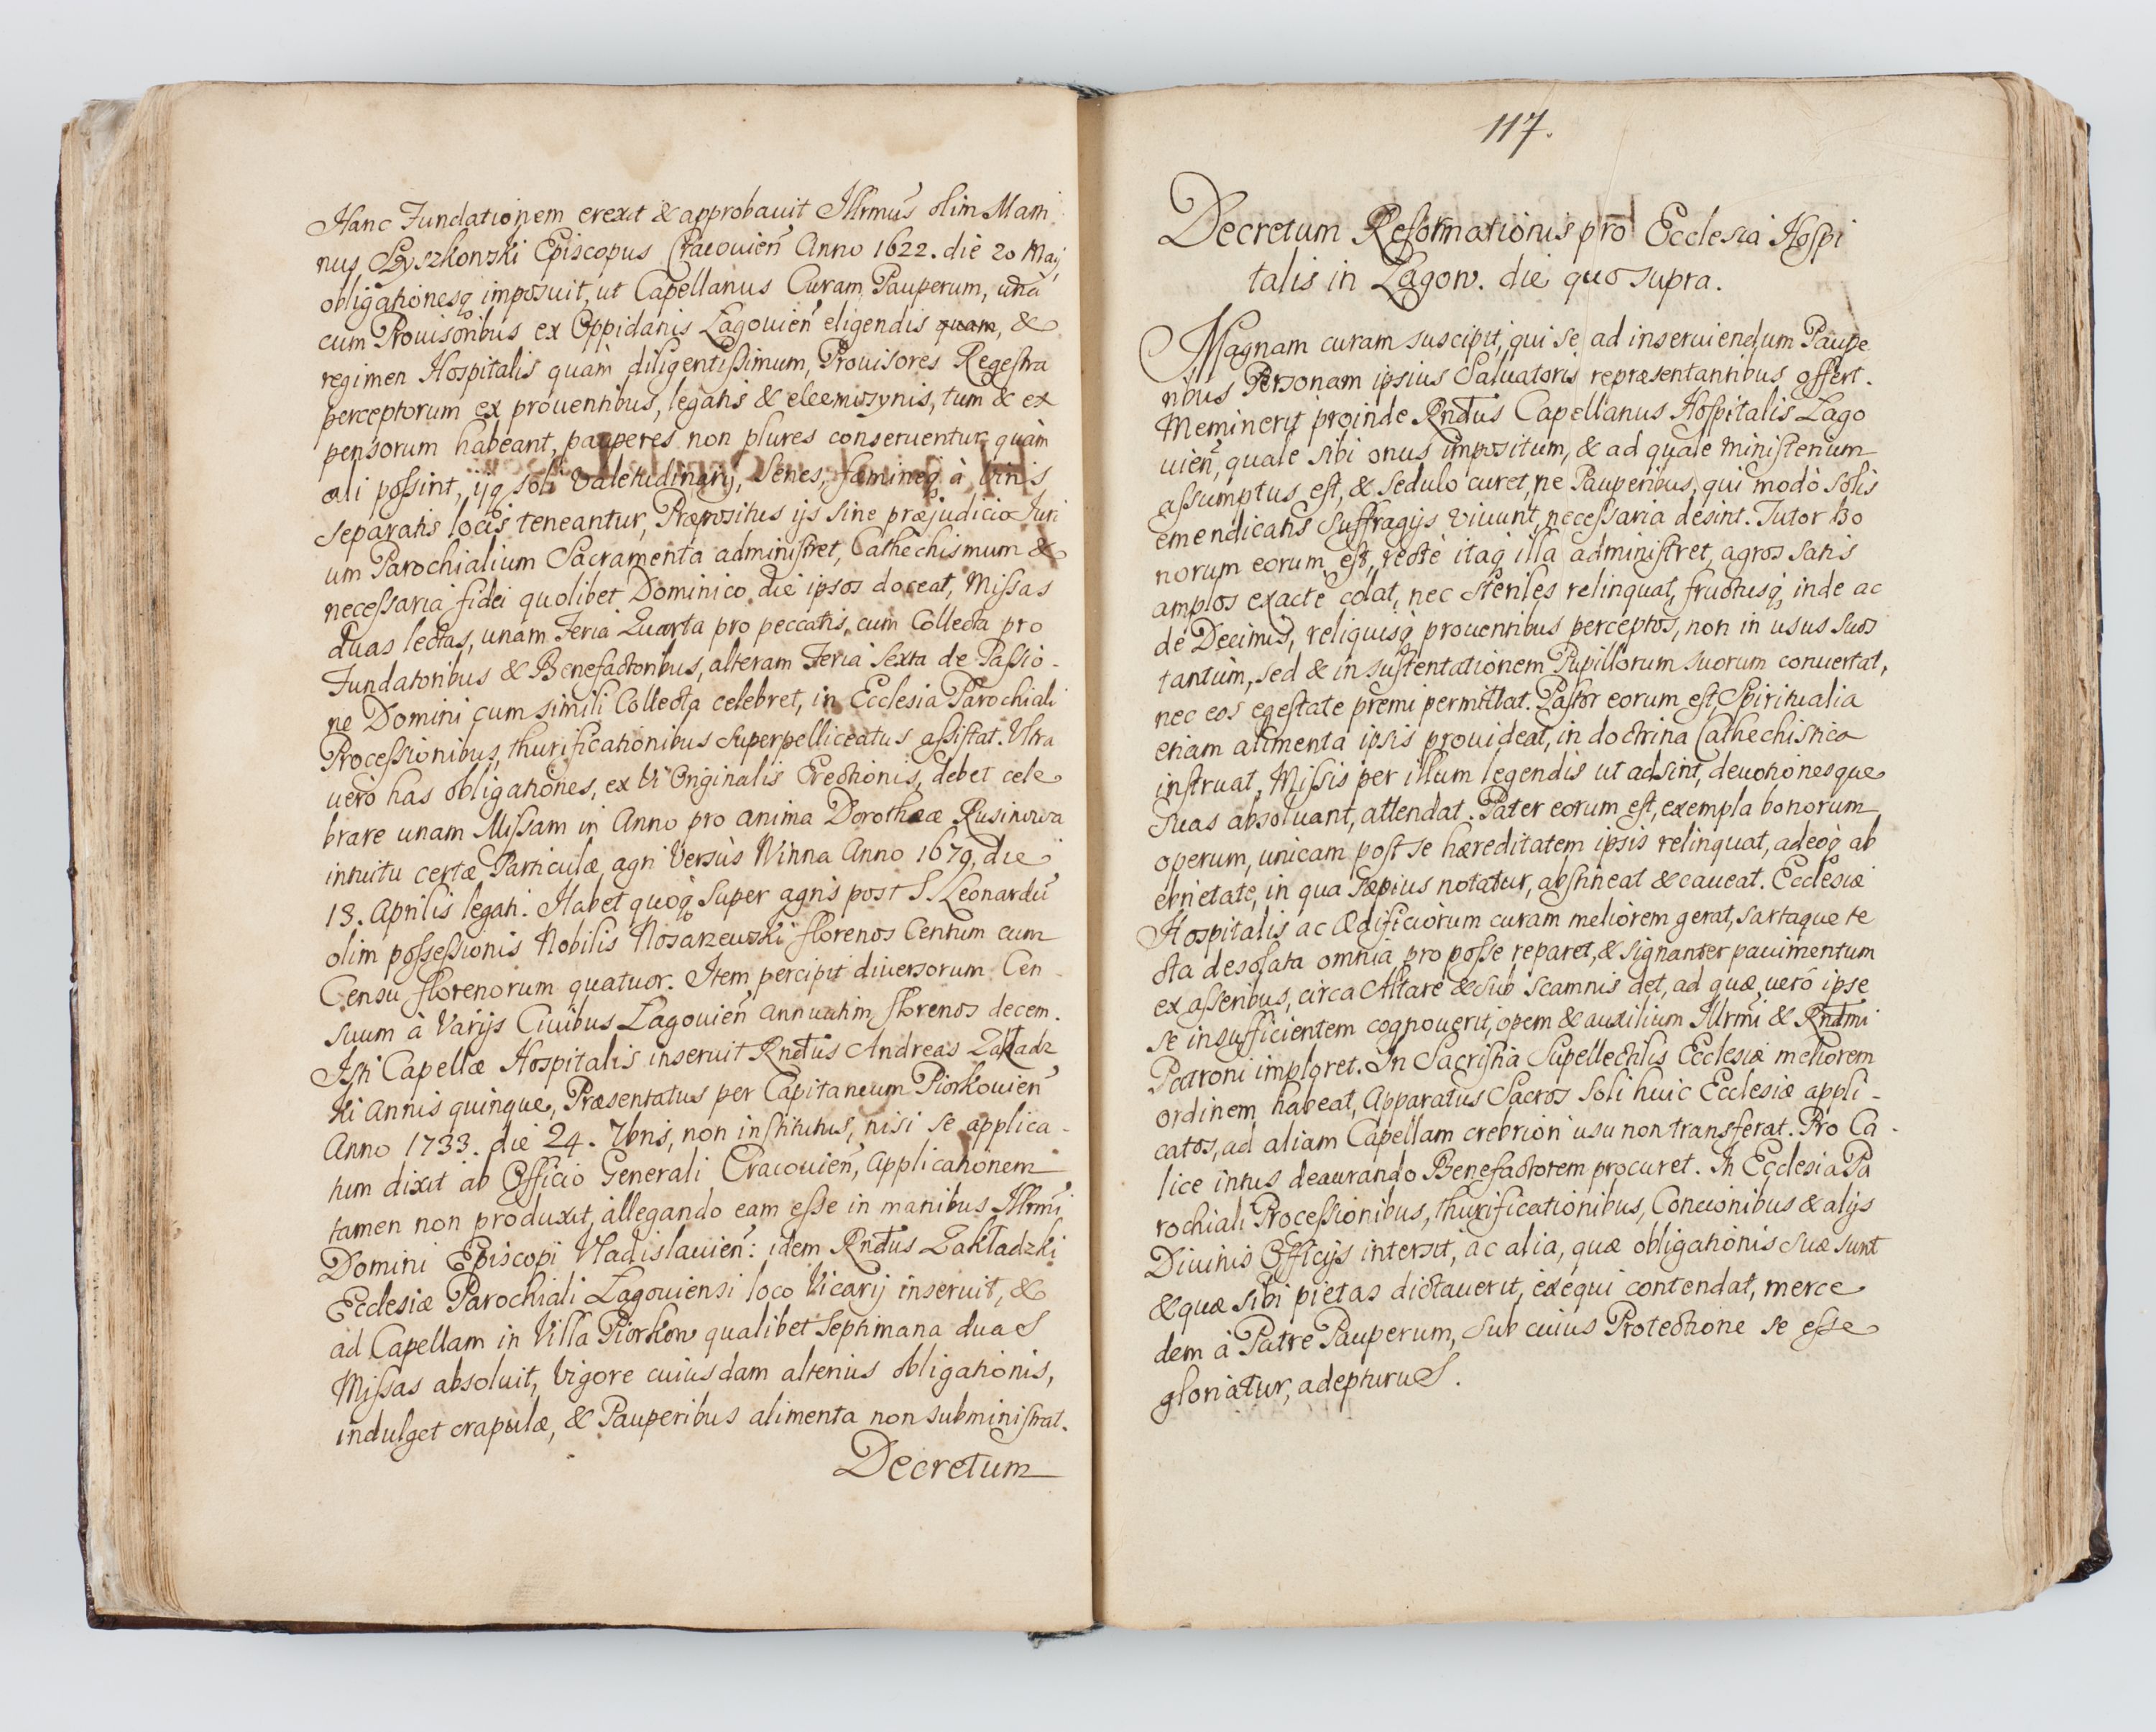 Hanc Fundationem erexit & approbauit Illrmus olim Marti
nus Szyszkowski Episcopus Cracouien Anno 1622. die 20 Maij
obligationesq imposuit, ut Capellanus Curam Pauperum, unà
cum Prouisoribus ex Oppidanis Lagouien eligendis quam, &
regimen Hospitalis quàm diligentissimum, Prouisores Regestra
perceptorum ex prouentibus, legatis & eleemosynis, tum & ex
pensorum habeant, pauperes non plures conseruentur quàm
ali possint, ijq soli Valetudinarij, Senes, fæmineq à Viris
separatis locis teneantur, Præpositus ijs sine præjudicio Juri
um Parochialium Sacramenta administret, Cathechismum &
necessaria fidei quolibet Dominico die ipsos doceat, Missas
duas lectas, unam Feria Quarta pro peccatis, cum Collecta pro
Fundatoribus & Benefactoribus, alteram Feria Sexta de Passio-
ne Domini cum simili Collecta celebret, in Ecclesia Parochiali
Processionibus, thurificationibus Superpelliceatus assistat. Ultra
uerò has obligationes, ex Vi Originalis Erectionis, debet cele
brare unam Missam in Anno pro anima Dorotheæ Rusinowa
intuitu certæ Particulæ agri Versùs Winna Anno 1679, die
18. Aprilis legati. Habet quoq Super agris post S. Leonardū
olim possessionis Nobilis Nosarzewski florenos Centum cum
Censu florenorum quatuor. Item percipit diuersorum Cen-
suum à Varijs Ciuibus Lagouien annuatim florenos decem.
Isti Capellæ Hospitalis inseruit Rndus Andreas Zakładz
ki Annis quinque, Præsentatus per Capitaneum Piorkouien
Anno 1733. die 24. 7bris, non institutus, nisi se applica-
tum dixit ab Officio Generali Cracouien, Applicationem
tamen non produxit, allegando eam esse in manibus Illrmi
Domini Episcopi Vladislauien: idem Rndus Zakładzki
Ecclesiæ Parochiali Lagouiensi loco Vicarij inseruit, &
ad Capellam in Villa Piorkow qualibet Septimana duas
Missas absoluit, Vigore cuiusdam alterius obligationis,
indulget crapulæ, & Pauperibus alimenta non subministrat.
Decretum
117.
Decretum Reformationis pro Ecclesia Hospi
talis in Lagow. die quo supra.
Magnam curam suscipit, qui se ad inseruiendum Paupe
ribus Personam ipsius Saluatoris repræsentantibus offert.
Meminerit proinde Rndus Capellanus Hospitalis Lago
uien, quale sibi onus impositum, & ad quale ministerium
assumptus est, & sedulo curet, ne Pauperibus, qui modò solis
emendicatis Suffragijs Viuunt, necessaria desint. Tutor bo
norum eorum est, rectè itaq illa administret, agros satis
amplos exactè colat, nec steriles relinquat, fructusq, inde ac
de Decimis, reliquisq prouentibus perceptos, non in usus suos
tantùm, sed & in sustentationem Pupillorum suorum conuertat,
nec eos egestate premi permittat. Pastor eorum est, Spiritualia
etiam alimenta ipsis prouideat, in doctrina Cathechistica
instruat, Missis per illum legendis ut adsint, deuotionesque
suas absoluant, attendat. Pater eorum est, exempla bonorum
operum, unicam post se hæreditatem ipsis relinquat, adeoq ab
ebrietate, in qua sæpius notatur, abstineat & caueat. Ecclesiæ
Hospitalis ac Ædificiorum curam meliorem gerat, sartaque te
cta desolata omnia pro posse reparet, & signanter pauimentum
ex asseribus, circa Altare & sub scamnis det, ad quæ, uerò ipse
se insufficientem cognouerit, opem & auxilium Illrmi & Rndmi
Patroni imploret. In Sacristia Supellectilis Ecclesiæ meliorem
ordinem habeat, Apparatus Sacros soli huic Ecclesiæ appli-
catos, ad aliam Capellam crebriori usu non transferat. Pro Ca-
lice intus deaurando Benefactorem procuret. In Ecclesia Pa
rochiali Processionibus, thurificationibus, Concionibus & alijs
Diuinis Officijs intersit, ac alia, quæ obligationis suæ sunt
& quæ sibi pietas dictauerit, exequi contendat, merce
dem à Patre Pauperum, sub cuius Protectione se esse
gloriatur, adepturus.